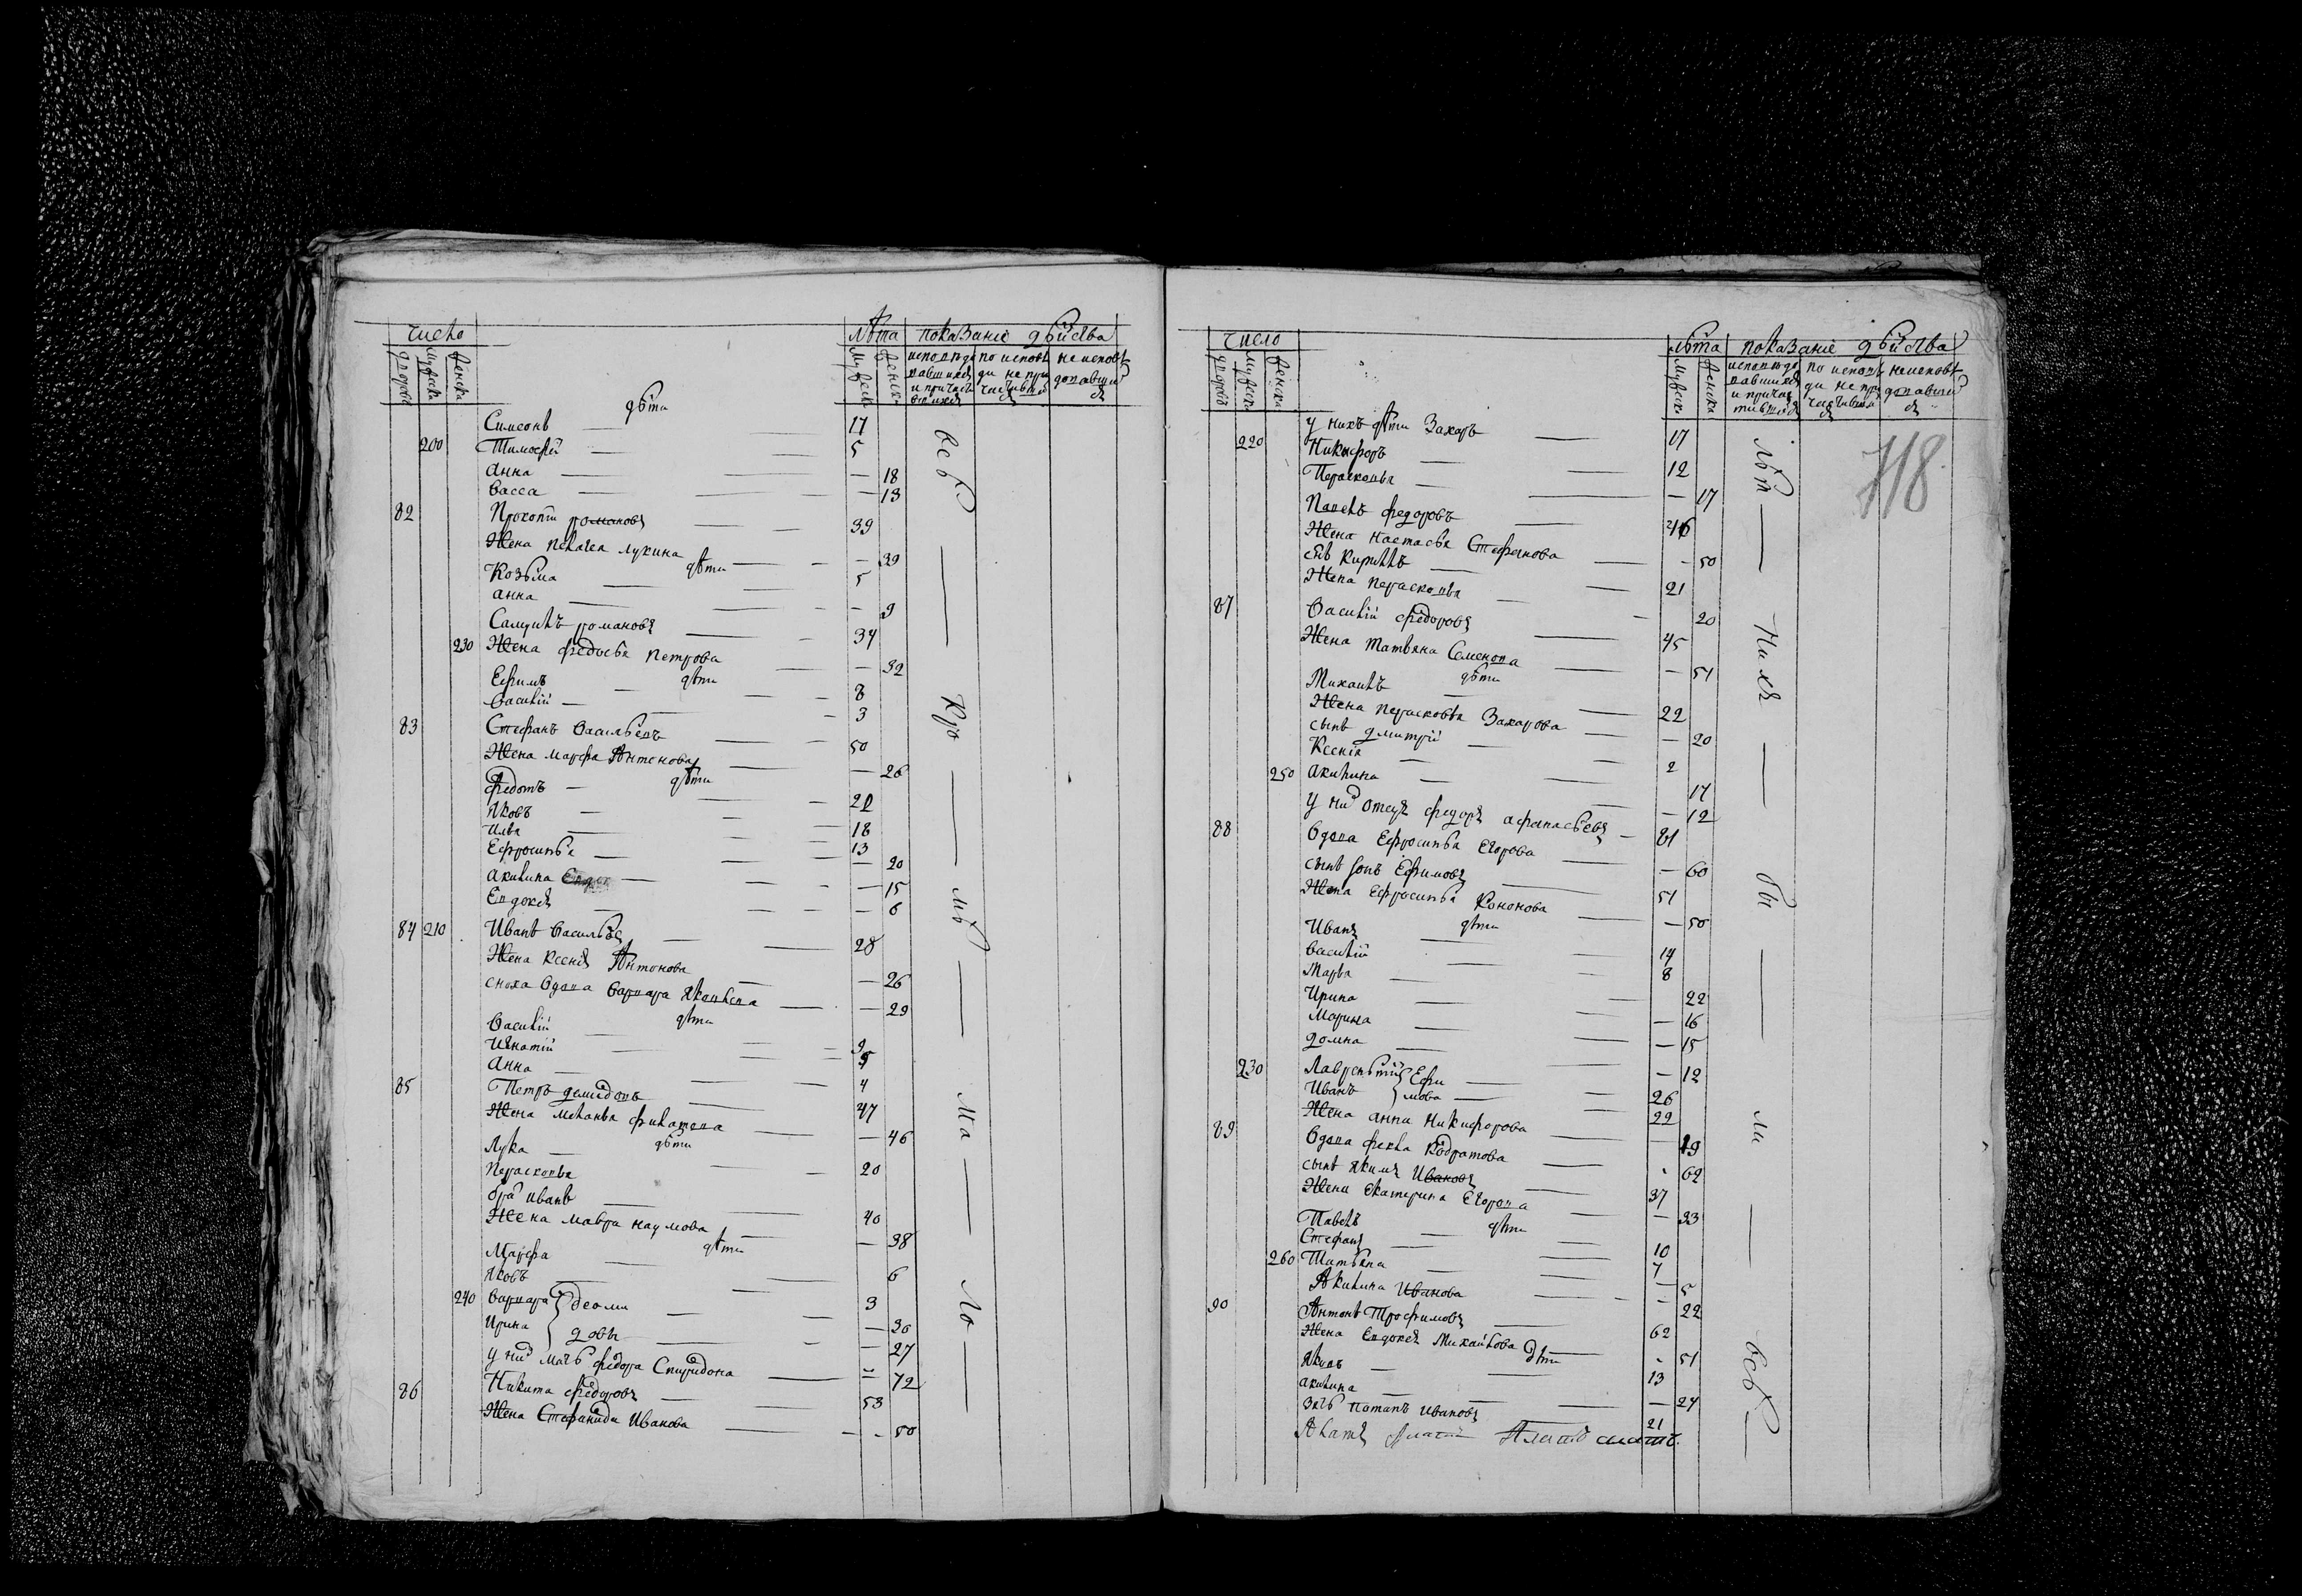 число
лѣта показаніе дѣйства
дворовъ мужеска женска
мужеска женска
исповѣдавшихся и причастившихся
по исповѣди не причастившихся
не исповѣдавшихся
дѣти
Симеонъ 17
200 Тимофѣй 5
Анна — 18
Васса — 13
82 Прокопій романовъ 39
Жена Пелагея лукина — 39
дѣти
Козьма 5
Анна — 9
Самуилъ романовъ 34
230 Жена Федосья Петрова — 32
дѣти
Ефимъ 8
Василій 3
83 Стефанъ Васильевъ 50
Жена марфа Антонова — 26
дѣти
Федотъ 21
Яковъ 18
Илья 13
Ефросинья — 20
Акилина — 15
Евдокія — 6
84 210 Иванъ Васильевъ 28
Жена Ксенія Антонова — 26
сноха вдова Варвара Яковлева — 29
дѣти
Василій 9
Игнатій
Анна 4
85 Петръ демидовъ 47
Жена меланья филатова — 46
дѣти
Лука 20
Парасковья
братъ иванъ 40
Жена мавра наумова — 38
дѣти
Марфа 6
Яковъ 3
240 Варвара — 36
Ирина } демидовы — 27
у нихъ мать федора Спиридонова — 72
86 Никита федоровъ 53
Жена Стефанида Иванова — 50
всѣ — Кро — мѣ — ма — ло —
число
лѣта показаніе дѣйства
дворовъ мужеска женска
мужеска женска
исповѣдавшихся и причастившихся
по исповѣди не причастившихся
не исповѣдавшихся
718
у нихъ дѣти Захаръ 17
220 Никифоръ 12
Парасковья — 17
Павелъ федоровъ 46
Жена настасья Стефанова — 50
сынъ Кирилъ 21
Жена парасковья 20
87 Василій федоровъ 45
Жена татьяна Семенова — 51
дѣти
Михаилъ 22
Жена парасковья Захарова — 20
сынъ дмитрій 2
Ксенія 17
250 Акилина — 12
у нихъ отецъ федоръ афанасьевъ 81
88 Вдова Ефросинья Егорова — 60
сынъ Ефимовъ 51
Жена Ефросинья Кононова — 50
дѣти
Иванъ 14
Василій 8
Марья 22
Ирина — 16
Марина — 15
домна — 12
230 Лаврентій } Ефи 26
Иванъ } мова 22
Жена анна Никифорова — 19
89 Вдова фекла Кодратова 62
сынъ Якимъ Ивановъ 37
Жена Екатерина Егорова — 33
дѣти
Павелъ 10
Стефанъ 7
260 Татьяна — 5
Акилина Иванова — 22
90 Антонъ Трофимовъ 62
Жена Евдокія Михайлова — 51
дѣти
Яковъ 13
Акилина — 24
зять Потапъ Ивановъ 21
лѣт — нихъ — бы — ли — всѣ —